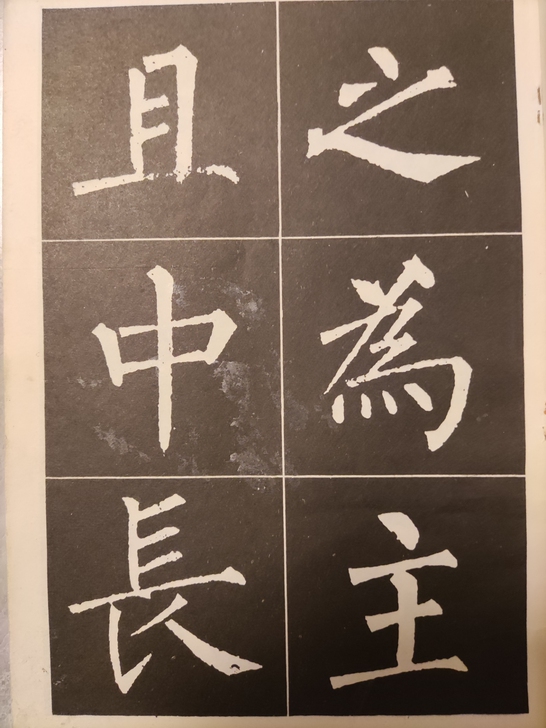 之為主
且中長